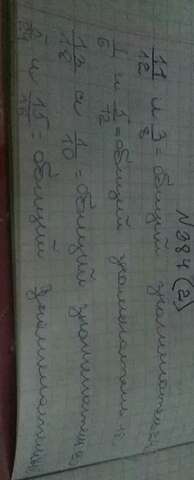 N 984 (2)
11/12 и 3/8 = общий знаменатель
1/6 и 1/12 = общий знаменатель 12
17/18 и 1/10 = общий знаменатель
и 15/16 = общий знаменатель